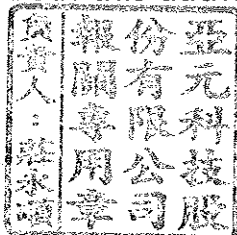 亞元科技股
份有限公司
報關專用章
負責人：